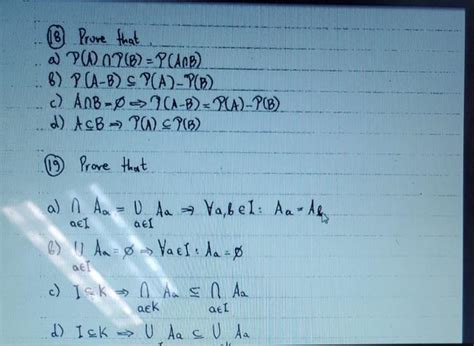 18 Prove that
a) P(A) ∩ P(B) = P(A∩B)
b) P(A-B) ⊆ P(A)-P(B)
c) A∩B = ∅ ⇒ P(A-B) = P(A)-P(B)
d) A⊆B ⇒ P(A) ⊆ P(B)
19 Prove that
a) ∩ Aa = ∪ Aa ⇒ ∀a,b∈I: Aa = Ab
a∈I a∈I
b) ∪ Aa = ∅ ⇒ ∀a∈I: Aa = ∅
a∈I
c) I⊆K ⇒ ∩ Aa ⊆ ∩ Aa
a∈K a∈I
d) I⊆K ⇒ ∪ Aa ⊆ ∪ Aa